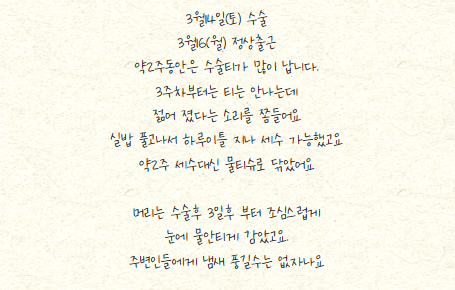 3월14일(토) 수술
3월16(월) 정상출근
약2주동안은 수술티가 많이 납니다.
3주차부터는 티는 안나는데
젊어 졌다는 소리를 쫌들어요
실밥 풀고나서 하루이틀 지나 세수 가능했고요
약2주 세수대신 물티슈로 닦았어요
머리는 수술후 3일후 부터 조심스럽게
눈에 물안티게 감았고요.
주변인들에게 냄새 풍길수는 없자나요